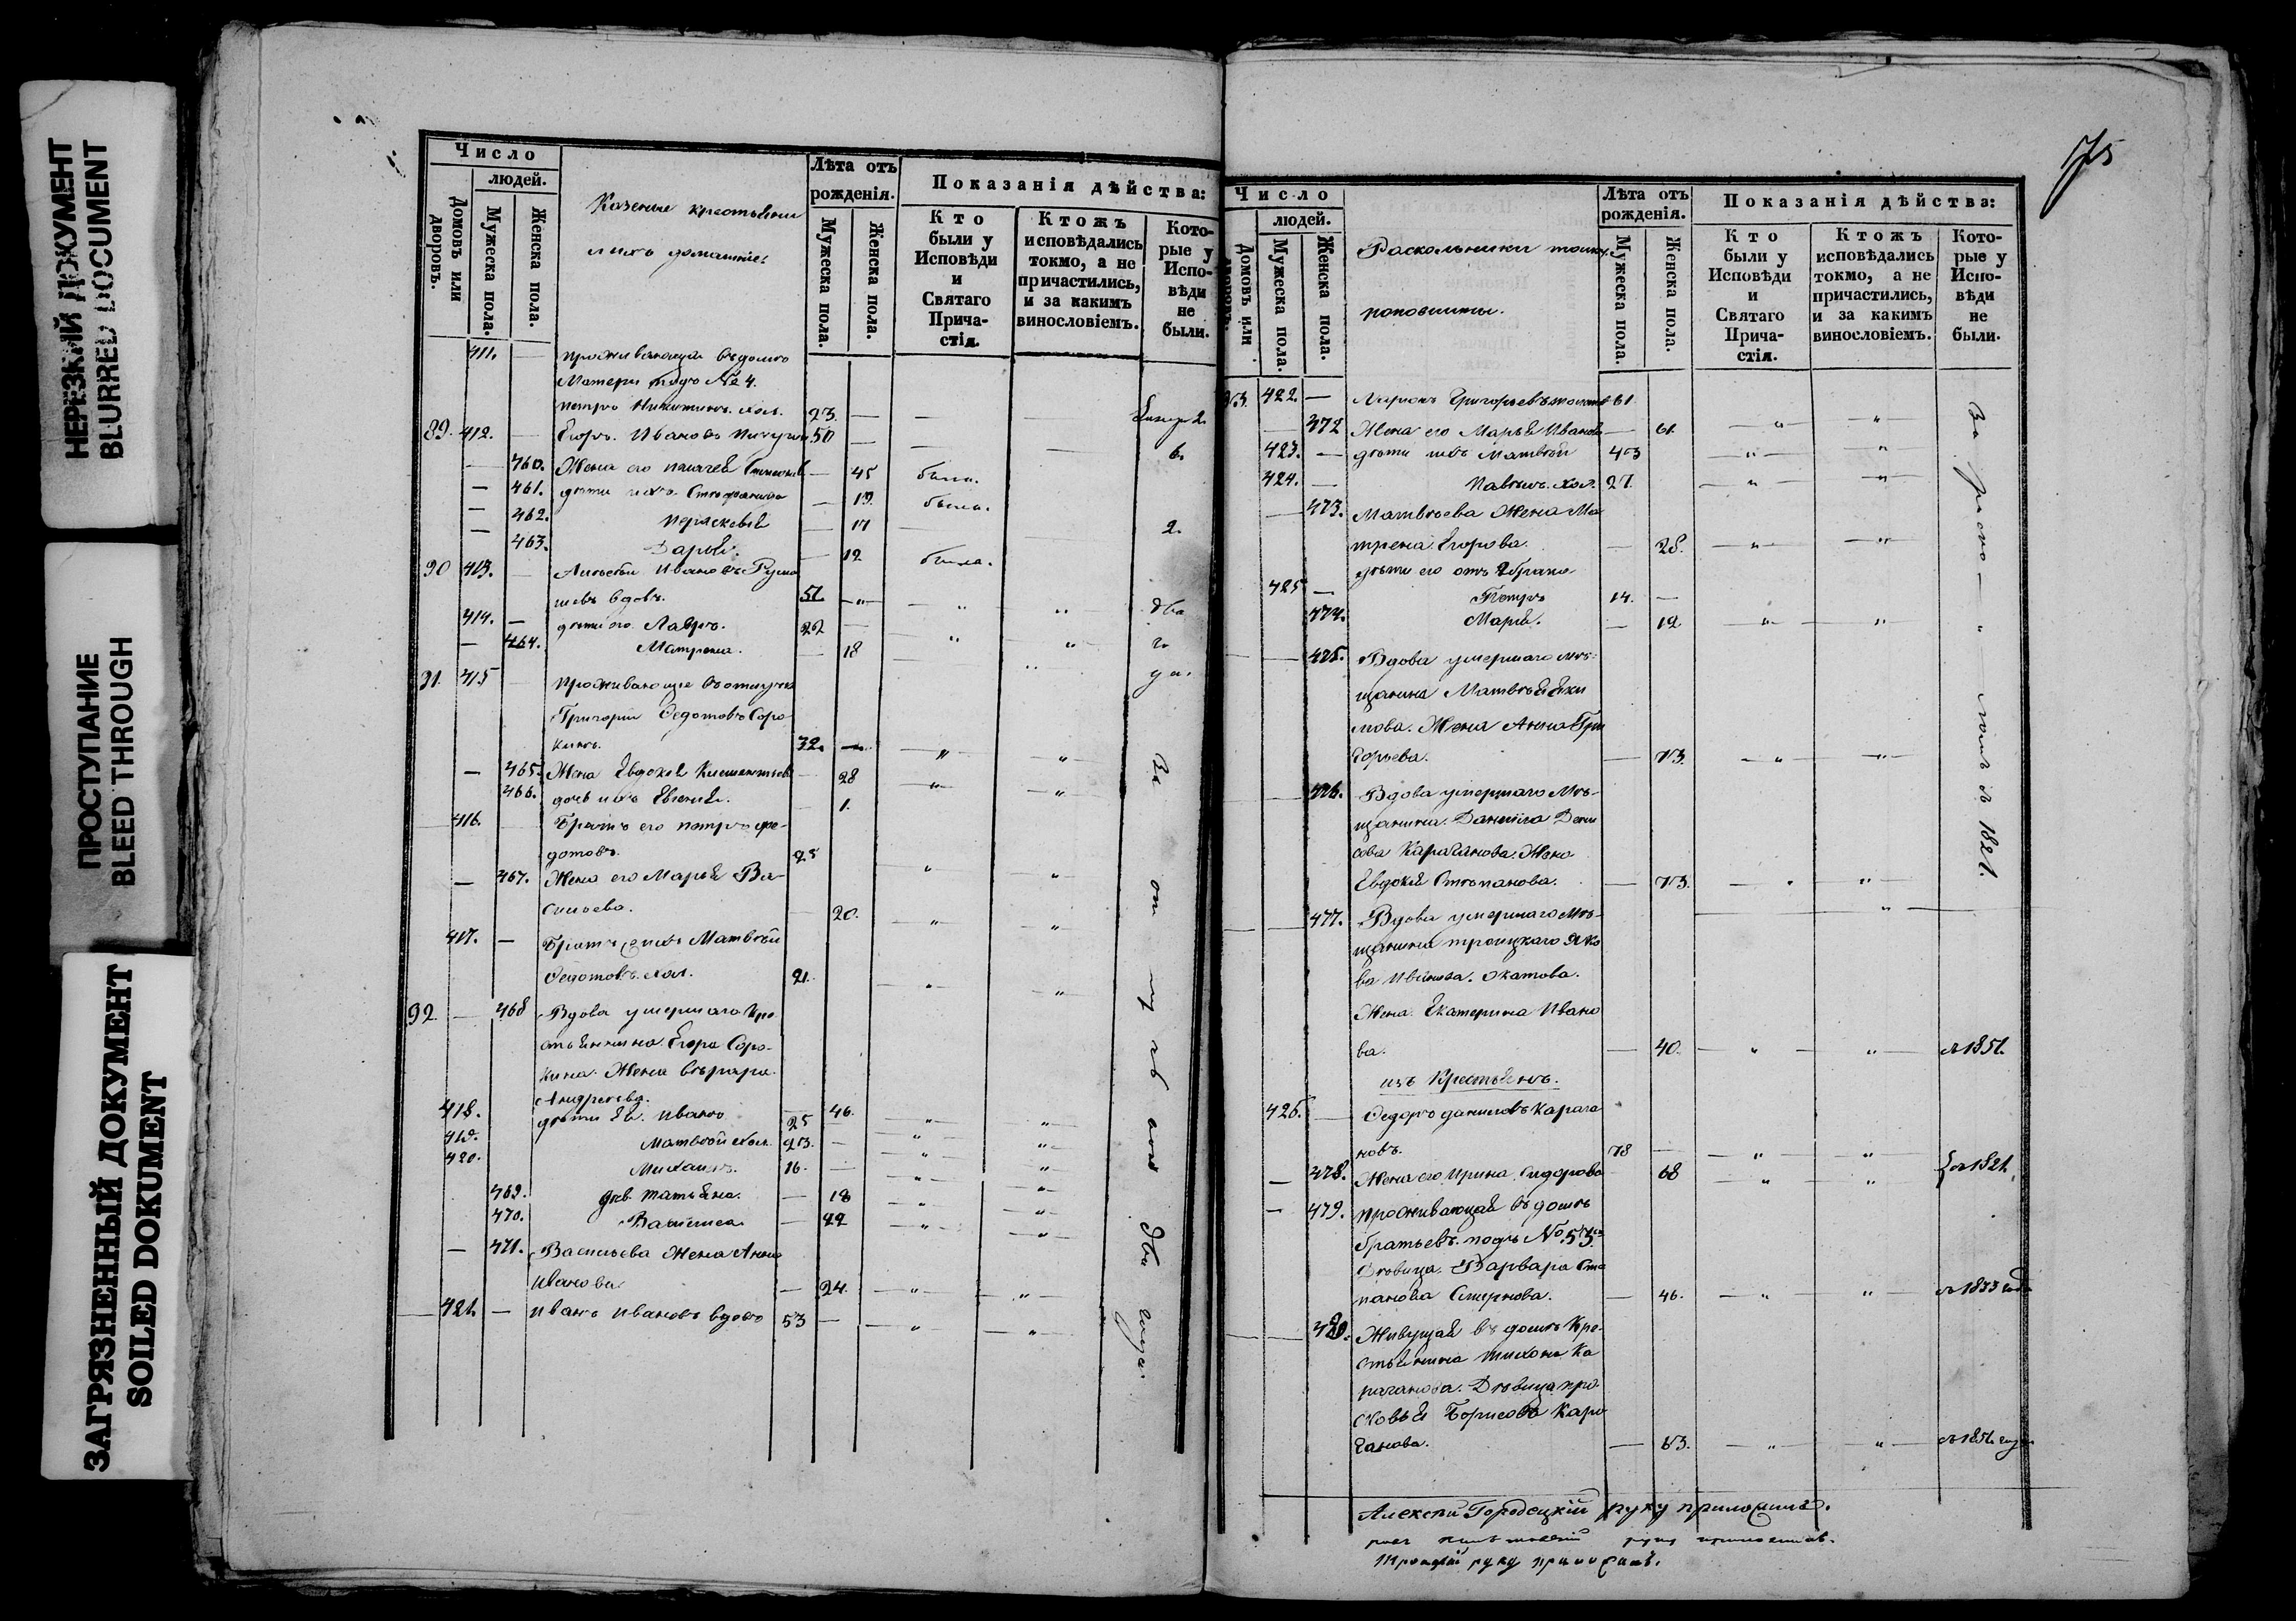 НЕРЕЗКИЙ ДОКУМЕНТ
BLURRED DOCUMENT
ПРОСТУПАНИЕ
BLEED THROUGH
ЗАГРЯЗНЕННЫЙ ДОКУМЕНТ
SOILED DOKUMENT
Число
людей.
Домовъ или дворовъ.
Мужеска пола.
Женска пола.
Казеные крестьяни
и ихъ домашніе.
Лѣта отъ рожденія.
Мужеска пола.
Женска пола.
Показанія дѣйства:
Кто были у Исповѣди и Святаго Прича-стія.
Ктожъ исповѣдались токмо, а не причастились, и за какимъ винословіемъ.
Кото-рые у Испо-вѣди не были.
411. — проживающій въ домѣ
Матери подъ № 4.
петръ Никитинъ. хол. 23. —
89. 412. — Егоръ Ивановъ 50 —
— 460. Жена его — 45 была.
— 461. дѣти ихъ Стефанида — 19. была.
— 462. Параскевія — 17 2.
— 463. Дарья. — 12 была.
90 413. — Алексѣй Ивановъ
вдовъ. 51. — два
414. — дѣти его Лавръ. 22 —
— 464. Матрена. — 18
91. 415 — проживающіе въ отлучке
Григорій Федотовъ Соро-
кинъ. 32. —
— 465. Жена Евдокія — 28
466. дочь ихъ Евгенія. — 1.
416. — Братъ его петръ фе-
дотовъ. 25
— 467. Жена его Марья Ва-
сильева. — 20.
417. — Братъ ихъ Матвѣй
Федотовъ. хол. 21.
92 — 468 Вдова умершаго кре-
стьянина. Егора Соро-
кина. Жена варвара.
Андреева. — 46.
418. дѣти Ея. Иванъ 25
419. Матвѣй хол. 23. —
420. Михаилъ. 16. —
469. дѣв. Татьяна. — 18
470. Василиса — 22
— 471. Васильева Жена Анна
Иванова — 24.
421. — Иванъ Ивановъ вдовъ 53 —
два года.
75
Число
людей.
Домовъ или дворовъ.
Мужеска пола.
Женска пола.
Раскольники толку
поповщины.
Лѣта отъ рожденія.
Мужеска пола.
Женска пола.
Показанія дѣйства:
Кто были у Исповѣди и Святаго Прича-стія.
Ктожъ исповѣдались токмо, а не причастились, и за какимъ винословіемъ.
Кото-рые у Испо-вѣди не были.
93. 422. — Ларіонъ Григорьевъ 61
— 472 Жена его Марья Иванова — 61.
423. — дѣти ихъ Матвѣй 43
424. — Павелъ. хол. 27.
— 473. Матвѣева Жена Ма
трена Егорова. — 28.
дѣти его отъ 1 брака
425 — Петръ 14. —
474. Марія. — 12
— 475. Вдова умершаго мѣ-
щанина Матвѣя Яки
мова. Жена Анна Гри
горьева. — 73.
476. Вдова умершаго Мѣ-
щанина. Даниила Дени
сова Карачанова. Жена
Евдокія Степанова. — 73.
477. Вдова умершаго Мѣ-
щанина троицкаго Яко
ва Иванова.
Жена Екатерина Ивано
ва. — 40. съ 1851.
съ 1821.
изъ Крестьянъ.
426. — Федоръ даниловъ Карача
новъ. 78 —
— 478. Жена его Ирина Сидорова 68 съ 1821.
— 479. проживающая въ домѣ
братьевъ. подъ № 53
Дѣвица. Варвара Сте
панова Смирнова. — 46. съ 1833 года
480. Живущая въ домѣ Кре-
стьянина Тихона Ка
рачанова. Дѣвица пра
сковья Борисова Кара
чанова. — 63. съ 1851 года
Алексѣй Городецкій руку приложилъ.
Троицкій руку приложилъ.